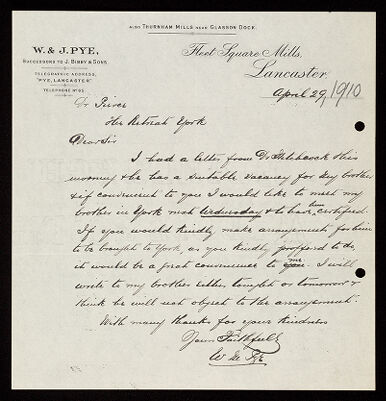 ALSO THURNHAM MILLS NEAR GLASSON DOCK.
W. & J. PYE,
SUCCESSORS TO J. BIBBY & SONS.
TELEGRAPHIC ADDRESS,
"PYE, LANCASTER."
TELEPHONE No 93.
Fleet Square Mills,
Lancaster,
April 29, 1910
Dr Pierce
The Retreat York
Dear Sir
I had a letter from Dr Hitchcock this
morning & he has a suitable vacancy for my brother
& if convenient to you I would like to meet my
brother in York next Wednesday & to have him certified.
If you would kindly make arrangement for him
to be brought to York, as you kindly proffered to do,
it would be a great convenience to me. I will
write to my brother either tonight or tomorrow &
think he will not object to the arrangement.
With many thanks for your kindness
Yours Faithfully
W Pye